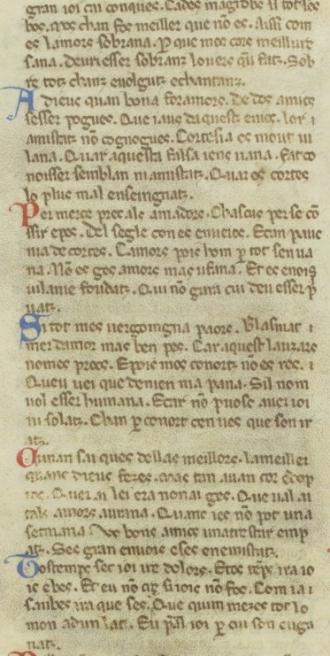 gran ioi cai conques.
bos. mos chan fos meiller que nō es. Aissi com
es lamors sobrana. ꝑ que mos cors meillura
sana. deuri esser sobranz louers qui faz. Sob
re totz chanz euolgutz echantatz.
A dieus quan bona foramors. De dos amics
sesser pogues. Que iaus da questz enios. lor i
amistatz nō cognogues. Cortesia es mout ui
lana. Quar aquesta falsa iens uana. fai co
noisser semblan ni amistatz. Quar es cortes
lo plus mal enseingnatz.
Per merce prec als amadors. Chascus per se cō
ssir e pes. Del segle con es enueios. Etan pauc
nia de cortes. Camors pois hom ꝑ tot sen ua
na. Nō es ges amors mas ufana. Et es enois
uilanie foudatz. Qui nō gara cui deu esser p
uatz.
Si tot mes uergoingna paors. Blasmat i
mer damor mas ben pes. Car aquest lauzars
nomes pros. E pois mos conortz nō es res. i
Queu uei que denien ma pana. Sil nom
uol esser humana. Ecar nō puosc auer ioi
ni solatz. Chan ꝑ conort cen ues que son ir
atz.
Quan sai ques dellas meillors. la meiller
quanc dieus fezes. mas tan auan cor
Quer ai lei era non ai ges. Que ual ai
tals amors aurana. Quanc ies nō pot una
setmana bons amics
atz. Ses gran enuois eses enemistatz.
Tostemps sec ioi ir e dolors. Etos temps ira io
is e bes. Et eu nō si iois nō fos. Com ia i
saubes ira que ses. Que quim mezes tot lo
mon ad un latz. Eu pen sai ioi ꝑ cui son enga
natz.